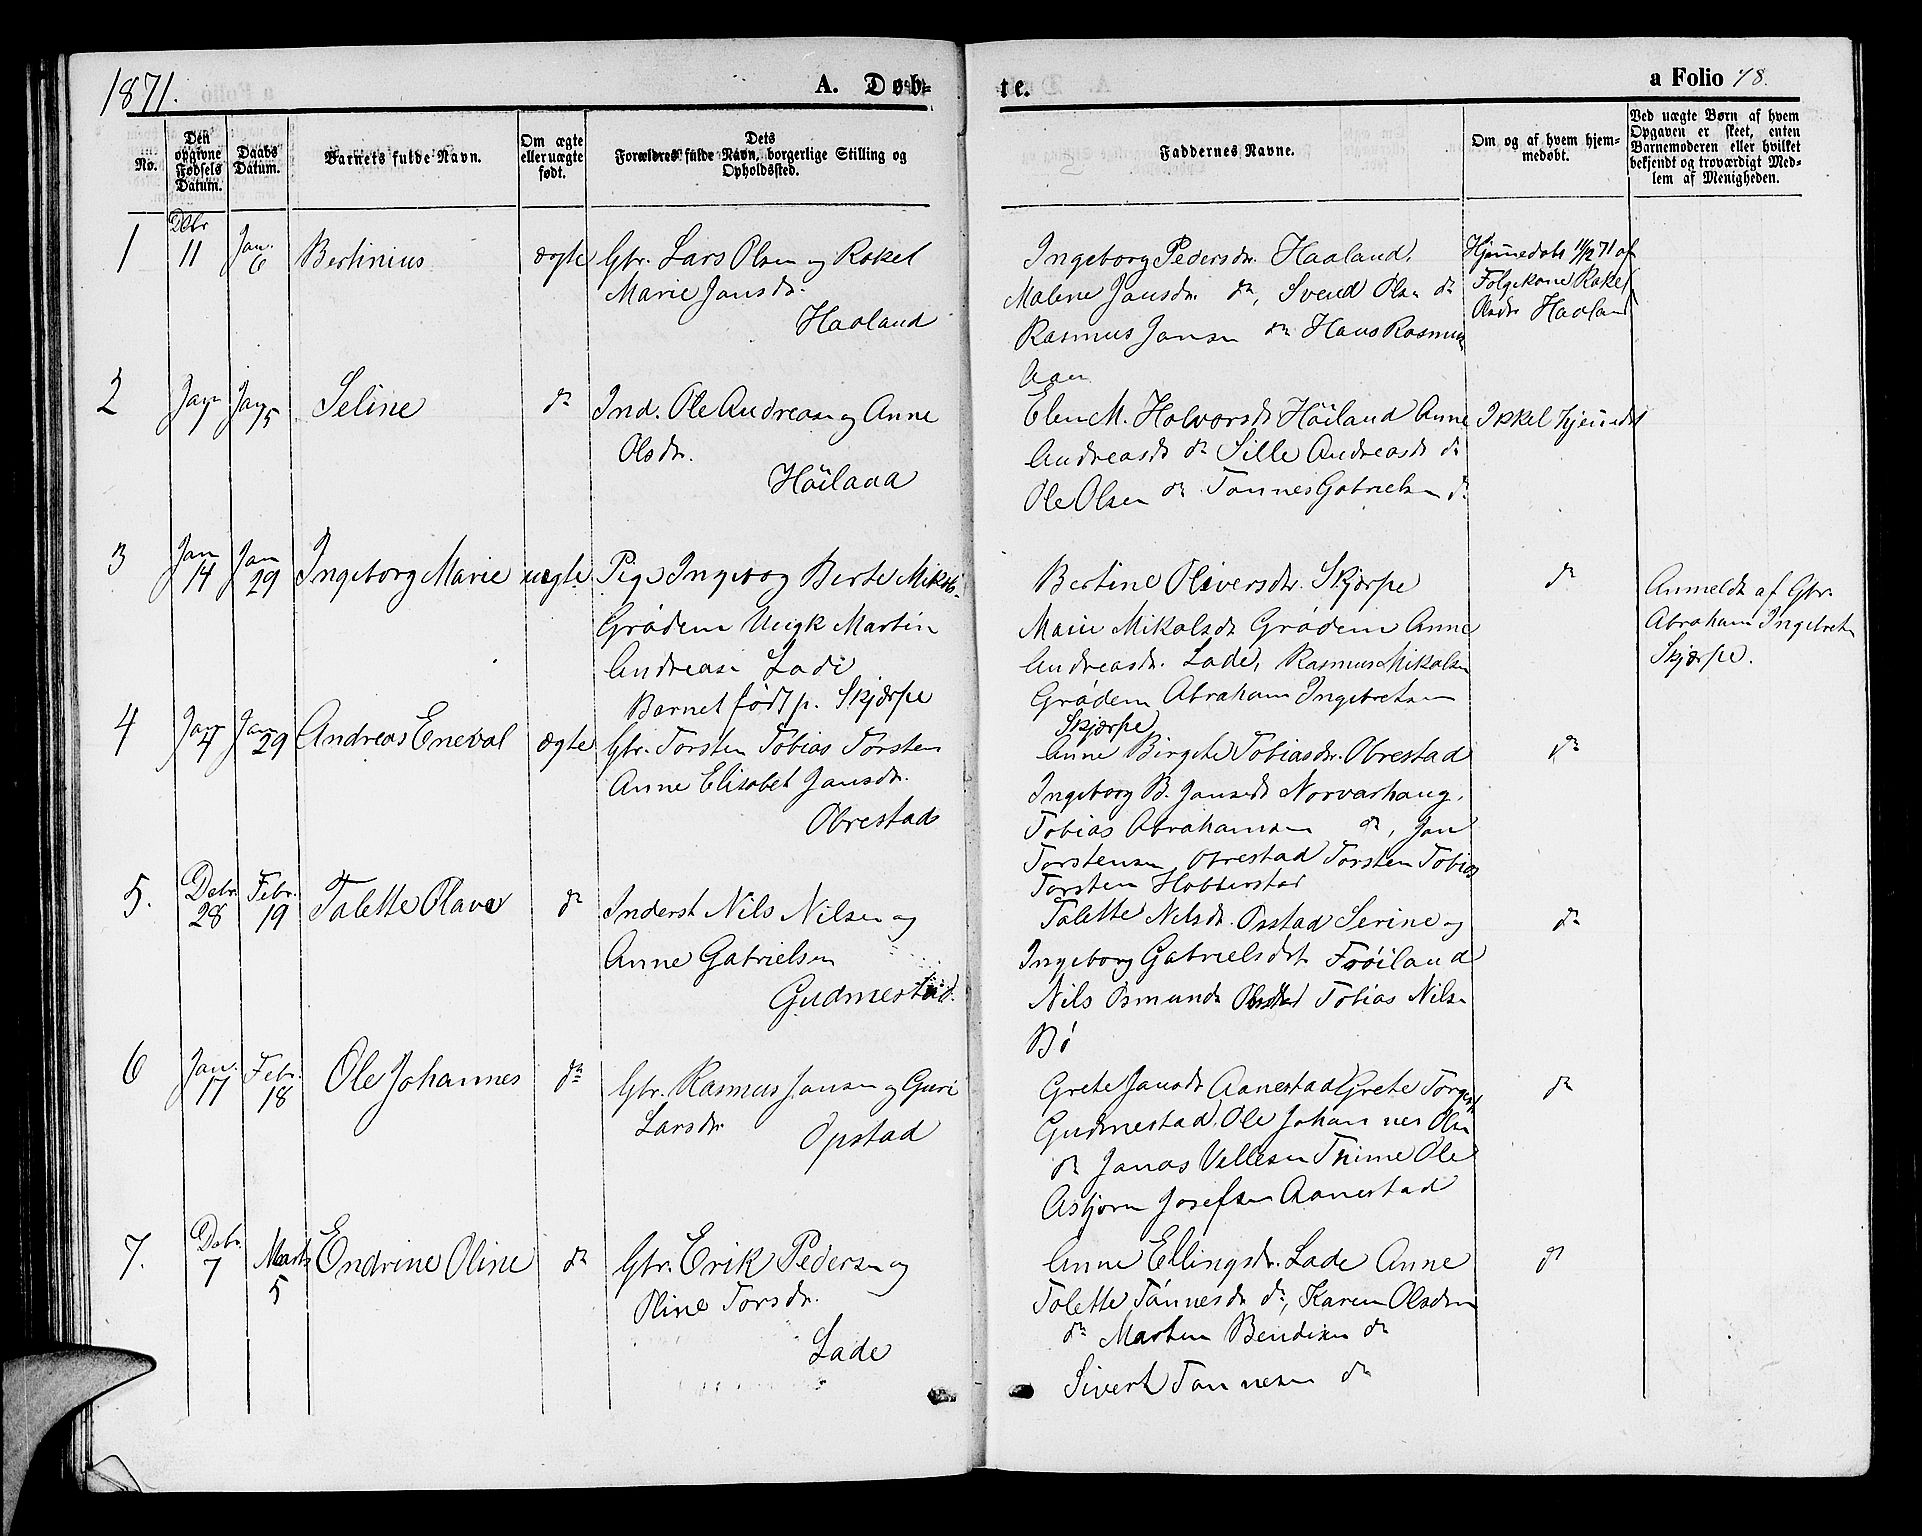 1871.
A. Døb-
te.
a Folio 78.
No.
Den opgivne Fødsels Datum.
Daabs Datum.
Barnets fulde Navn.
Om ægte eller uægte født.
Dets Forældres fulde Navn, borgerlige Stilling og Opholdssted.
Faddernes Navne.
Om og af hvem hjem-
medøbt.
Ved uægte Børn af hvem
Opgaven er skeet, enten
Barnemoderen eller hvilket
bekjendt og troværdigt Med-
lem af Menigheden.
1
Dcbr 11
Jan. 6
Bertinius
ægte
Gbr. Lars Olsen og Rakel
Marie Jansdr.
Haaland
Ingeborg Pedersdr. Haaland,
Malene Jansdr. do, Svend Olsen do
Rasmus Jansen do Hans Rasmus
Aaen
Hjemmedøbt 11/12 71 af
Følgekone Rakel
Olsdr Haaland
2
Jan 7
Jan 15
Seline
do
Ind. Ole Andreasen og Anne
Olsdr.
Höiland
Elen M. Halvorsdr Höiland Anne
Andreasdr do Sille Andreasdr do
Ole Olsen do Tönnes Gabrielsen do
Ikkel hjemmedøbt
3
Jan 14
Jan 29
Ingeborg Marie
uægte
Pige Ingeborg Berte Mikals.
Grødem Ungk Martin
Andreasen Lade
Barnet født p. Skjærpe
Bertine Oliversdr. Skjærpe
Marie Mikalsdr Grødem Anne
Andreasdr. Lade, Rasmus Mikalsen
Grødem Abraham Ingebretsen
Skjærpe
do
Anmeldt af Gbr.
Abraham Ingebretsen
Skjærpe.
4
Jan 4
Jan 29
Andreas Eneval
ægte
Gbr. Torsten Tobias Torsten
Anne Elisabet Jansdr.
Obrestad
Anne Birgite Tobiasdr. Obrestad
Ingeborg B. Jansdr Norvarhaug,
Tobias Abrahamsen do, Jan
Torstensen Obrestad Torsten Tobias
Torsten Hobberstad
do
5.
Debr. 28
Febr. 19
Talette Olava
do
Inderst Nils Nilsen og
Anne Gabrielsen
Gudmestad.
Talette Nilsdr. Opstad Serine og
Ingeborg Gabrielsdtr Frøiland
Nils Osmunds Tobias Nilsen
Bø
do
6
Jan. 17
Febr. 18
Ole Johannes
do
Gbr. Rasmus Jansen og Guri
Larsdr.
Opstad
Grete Jansdr Aanestad Grete Torgersdr
Gudmestad. Ole Johannes Olsen
do Janas Vallesen Thime Ole
Asbjørn Josefsen Aanestad
do
7.
Debr. 7
Marts 5
Endrine Oline
do
Gbr. Erik Pedersen og
Oline Torsdr.
Lade
Anne Ellingsdr. Lade Anne
Talette Tønnesdr do, Karen Olsdr
do Marten Bendixen do
Sivert Tønnesen do
do